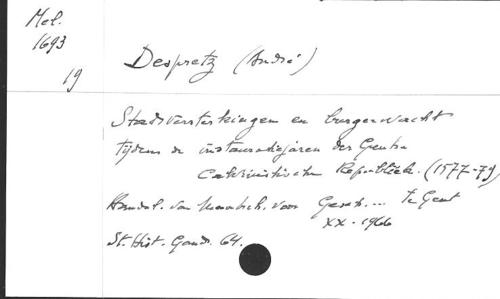 Mel.
1693
19
Despretz (André)
Stadsversterkingen en burgerwacht
tijdens de instauratiejaren der Gentse
Calvinistische Republiek. (1577-79)
Handel. van Maatsch. voor Gesch... te Gent
XX - 1966
St. Hist. Gand. 64.